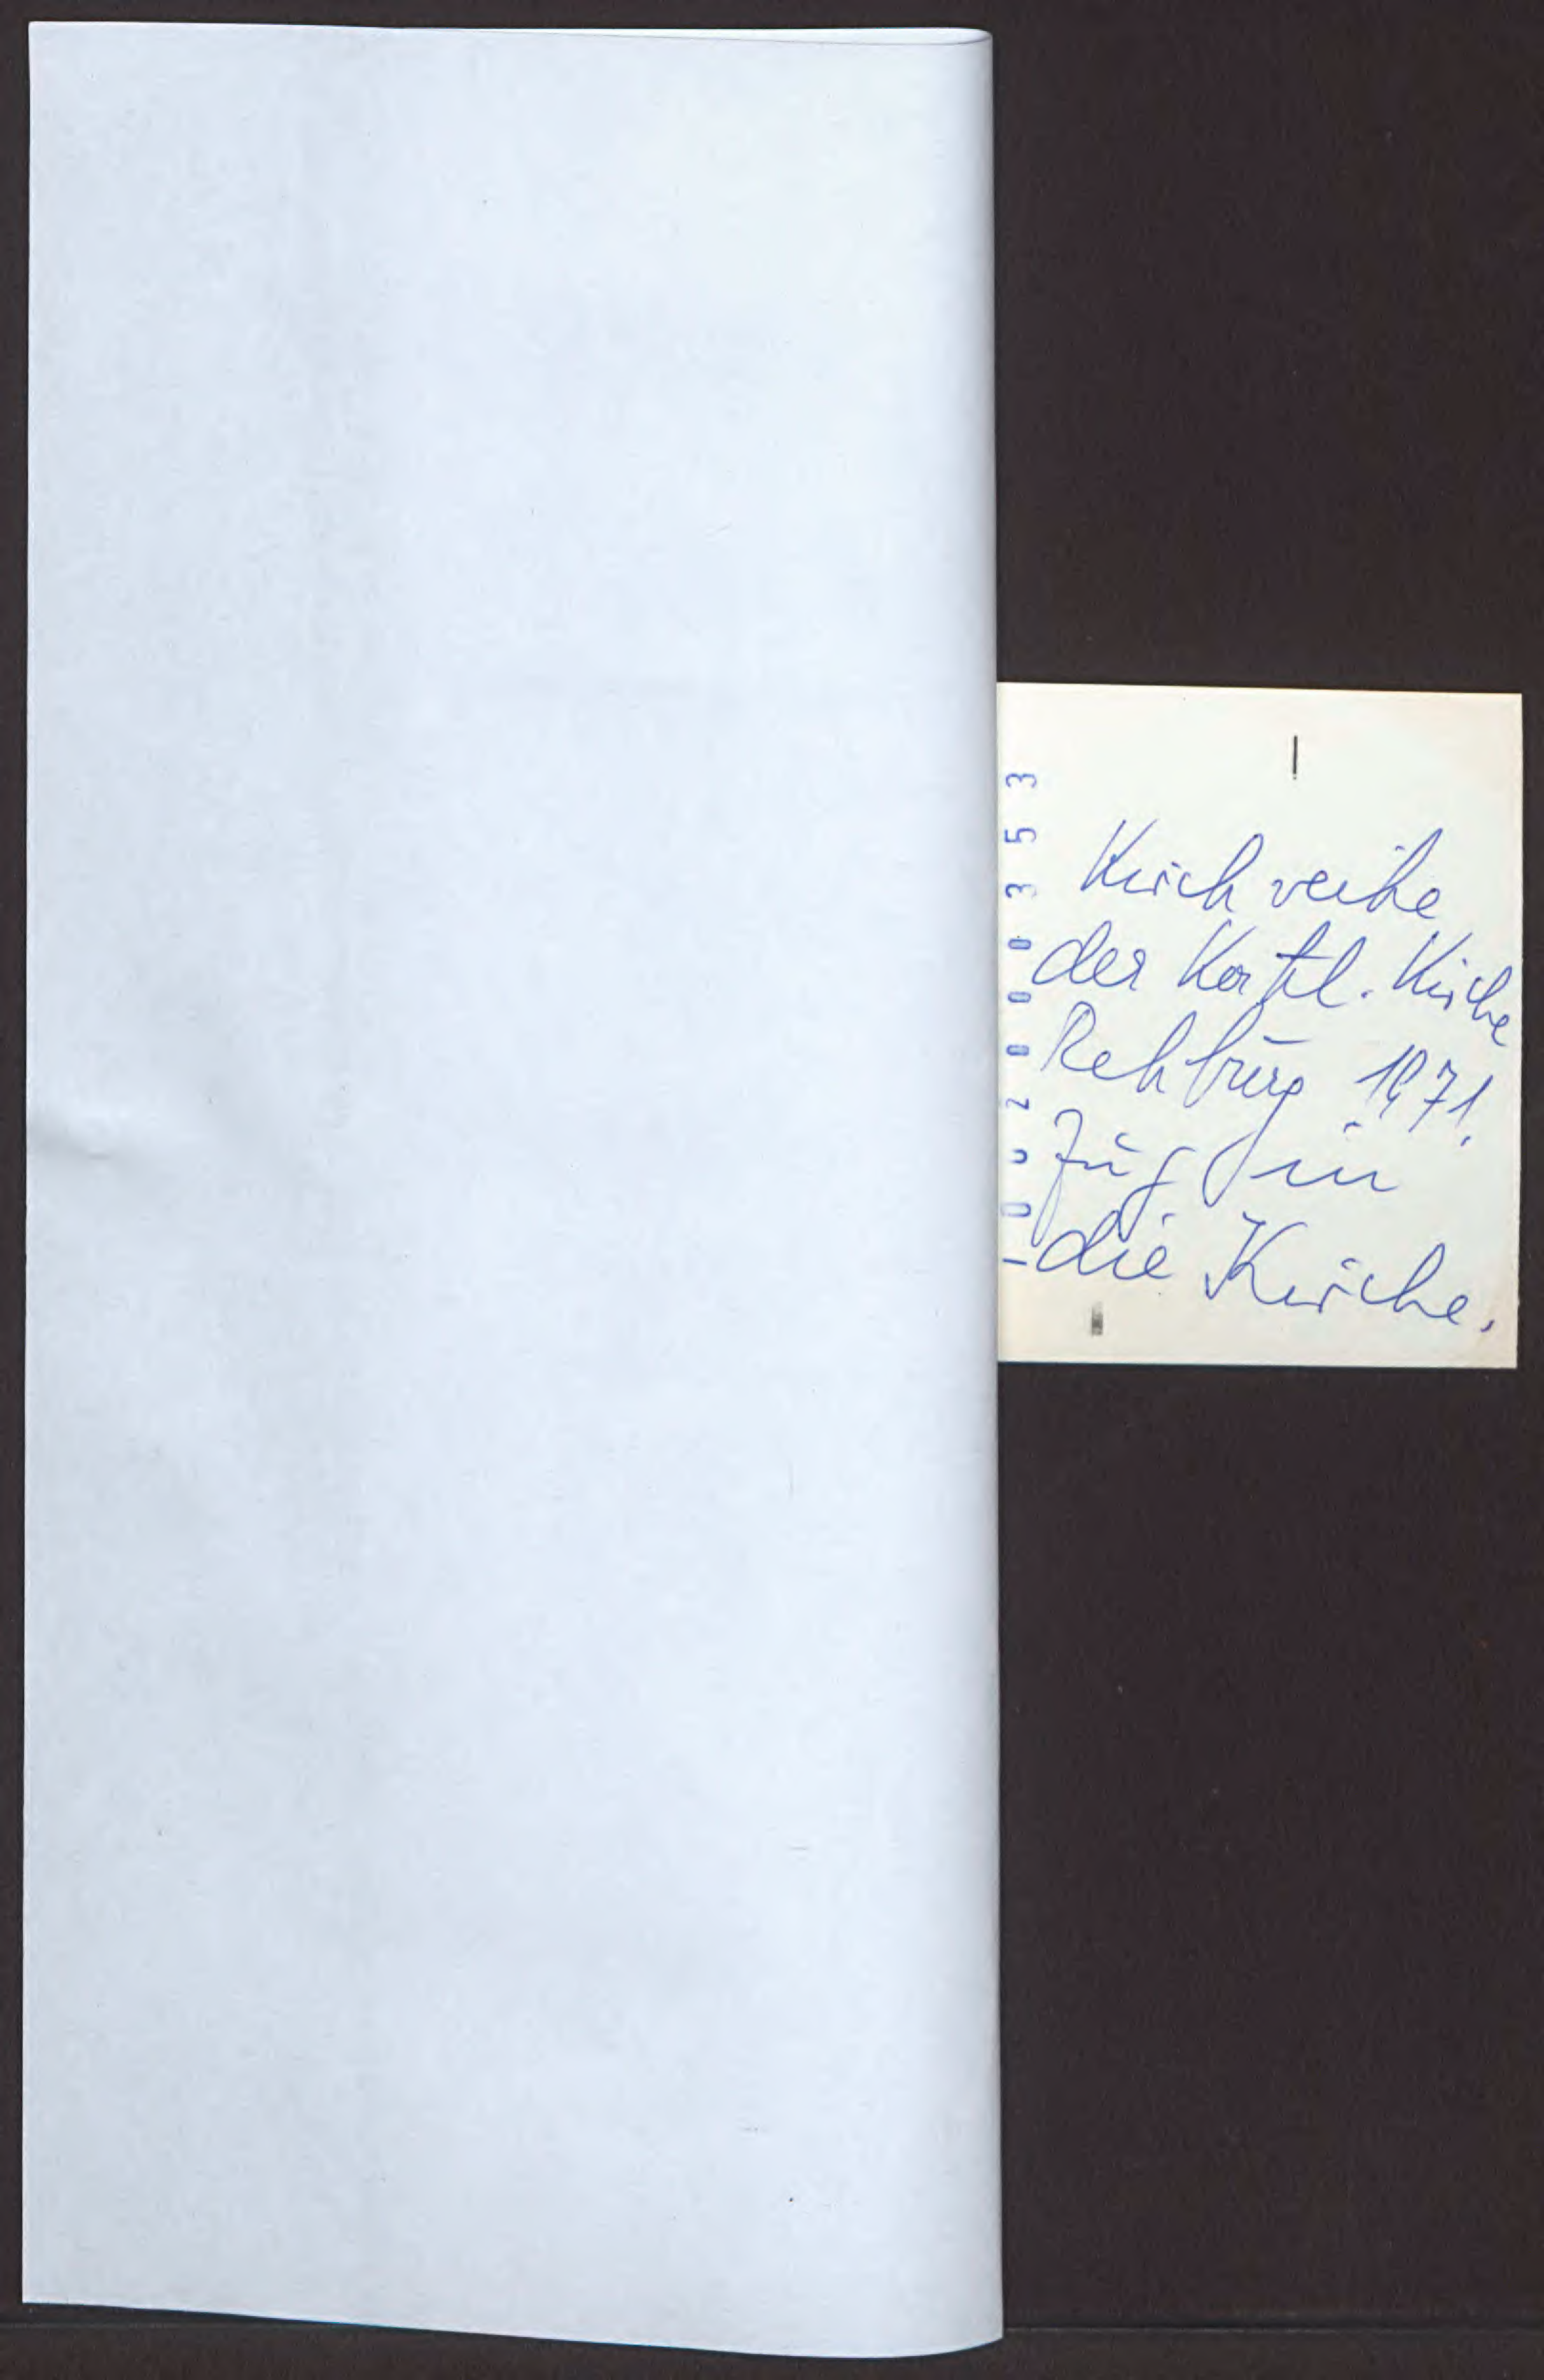 Kirchweihe
der Kathl. Kirche
Rehburg 1971.
Zug in
die Kirche.
1002000353